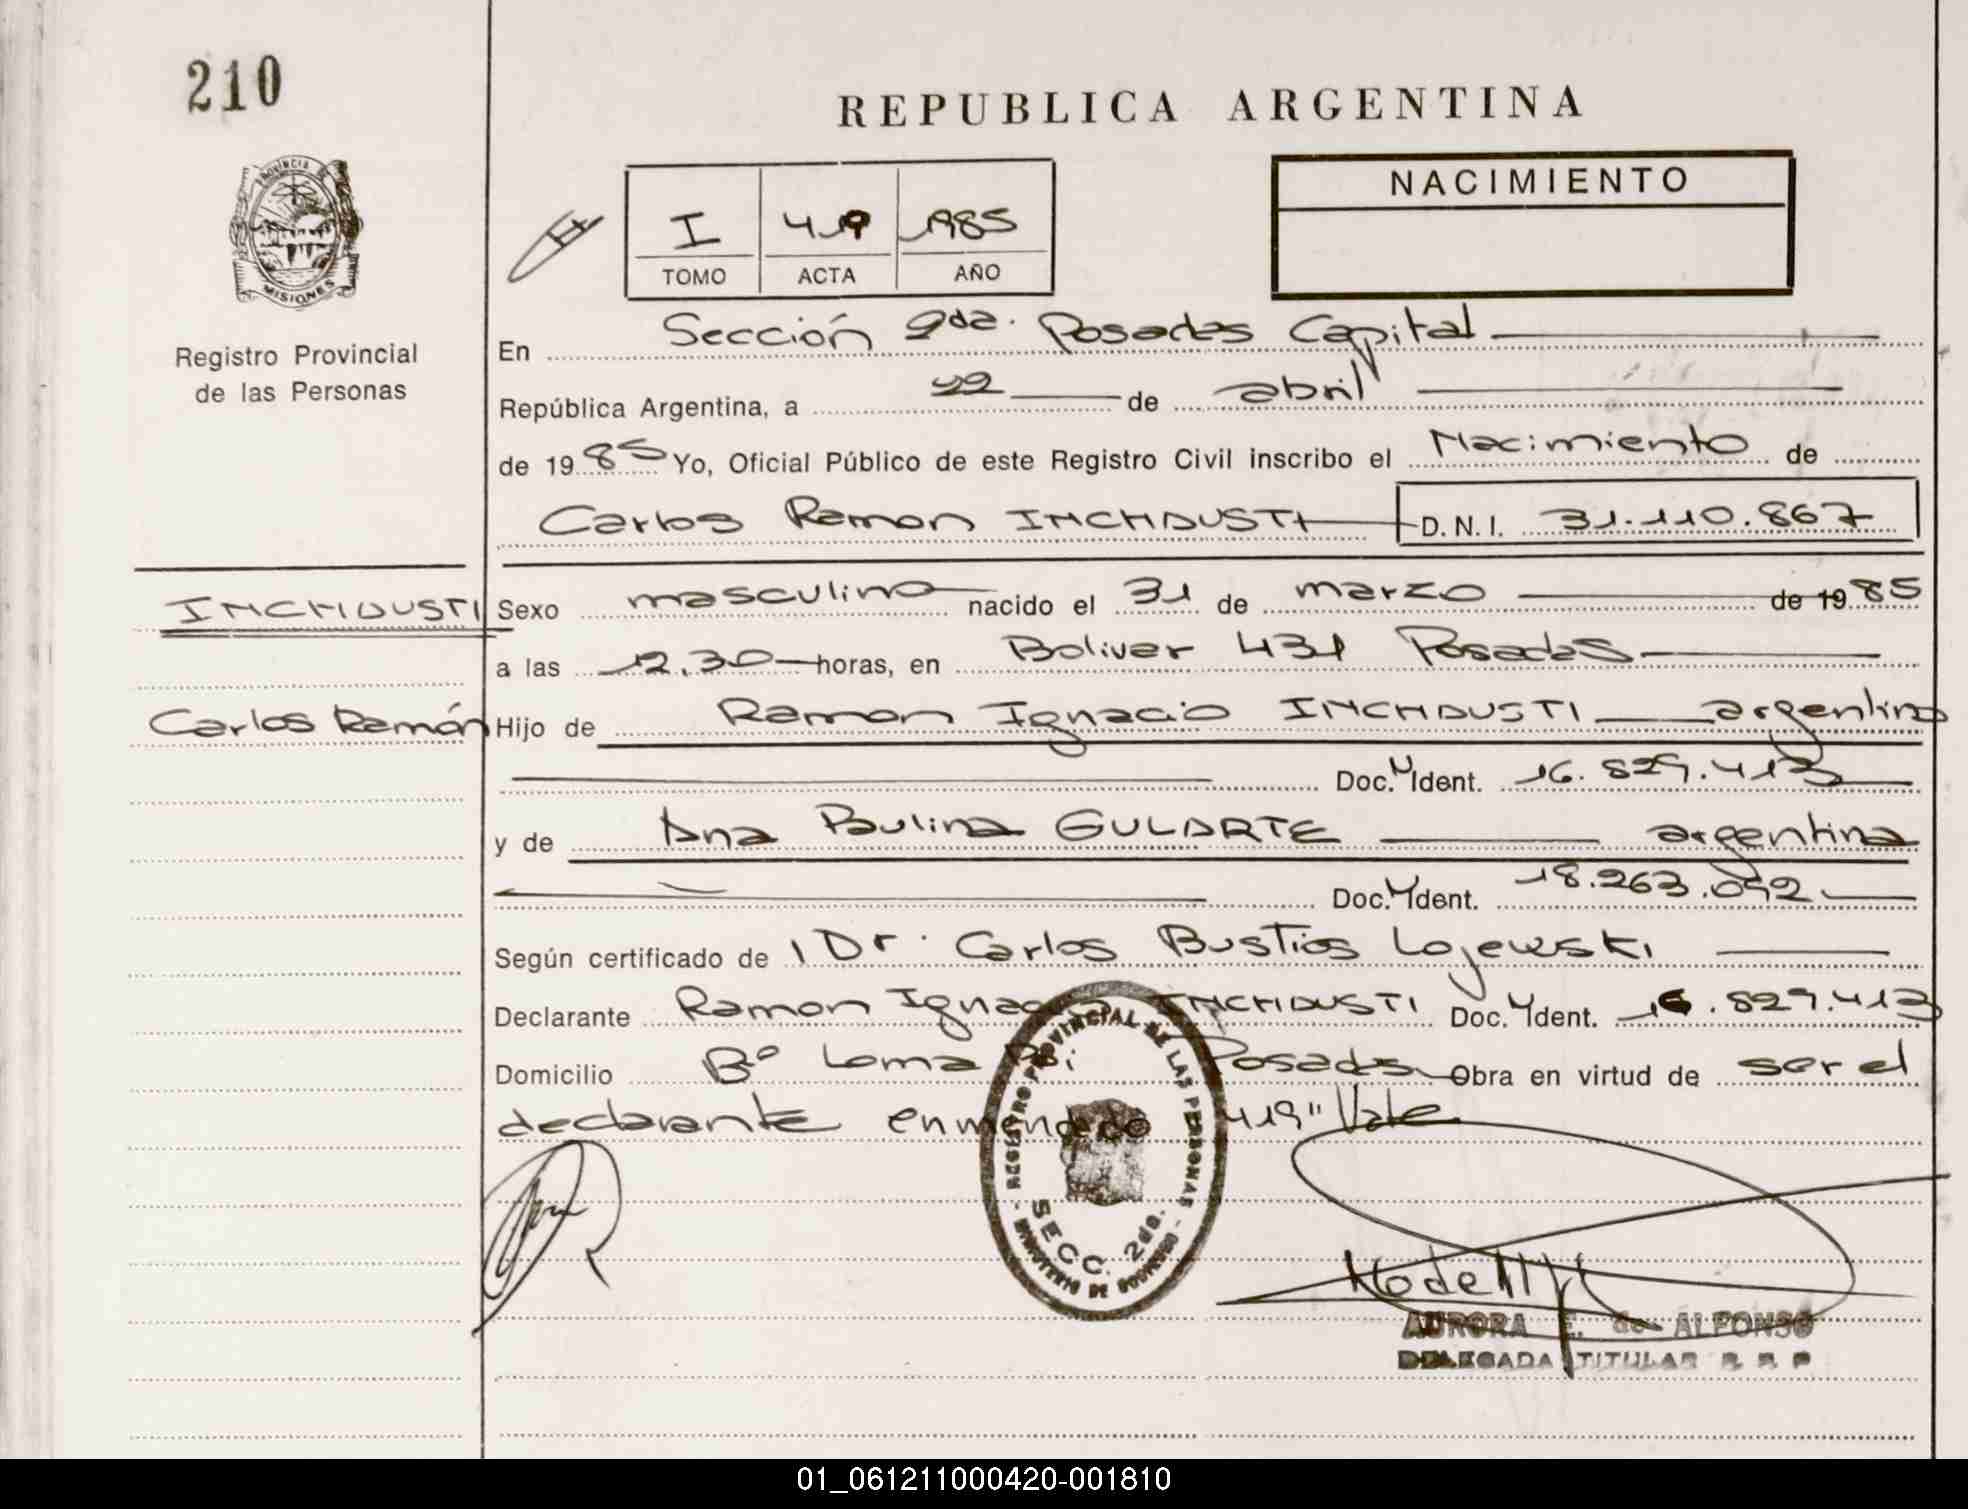 210
REPUBLICA ARGENTINA
PROVINCIA DE
MISIONES
Registro Provincial
de las Personas
I 419 1985
TOMO ACTA AÑO
NACIMIENTO
En Sección 2da. Posadas Capital
República Argentina, a 22 de abril
de 1985 Yo, Oficial Público de este Registro Civil inscribo el Nacimiento de
Carlos Ramon INCHAUSTI D.N.I. 31.110.867
INCHAUSTI
Carlos Ramón
Sexo masculino nacido el 31 de marzo de 1985
a las 12.30 horas, en Bolivar 431 Posadas
Hijo de Ramon Ignacio INCHAUSTI argentino
Doc. Ident. 16.829.413
y de Ana Paulina GULARTE argentina
Doc. Ident. 18.263.092
Según certificado de Dr. Carlos Bustios Lojewski
Declarante Ramon Ignacio INCHAUSTI Doc. Ident. 16.829.413
Domicilio Bº Loma Posadas Obra en virtud de ser el
declarante enmendado 419" Vale
REGISTRO PROVINCIAL DE LAS PERSONAS
SECC. 2da.
MINISTERIO DE GOBIERNO
AURORA E. de ALFONSO
DELEGADA TITULAR R R P
01_061211000420-001810